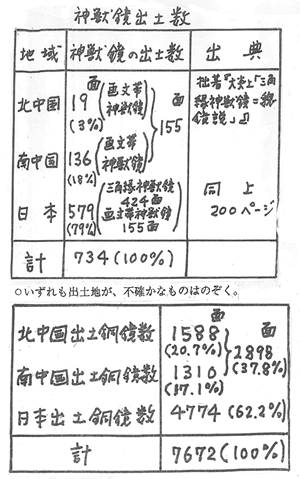 神獣鏡出土数
地域 神獣鏡の出土数 出典
北中国 19面 (3%) (画文帯神獣鏡) 155面
拙著『大炎上「三角縁神獣鏡=魏鏡説」』
南中国 136 (18%) (画文帯神獣鏡)
日本 579 (79%) (三角縁神獣鏡 424面 画文帯神獣鏡 155面) 同上 200ページ
計 734(100%)
○いずれも出土地が、不確かなものはのぞく。
北中国出土銅鏡数 1588面 (20.7%) 2898面 (37.8%)
南中国出土銅鏡数 1310 (17.1%)
日本出土銅鏡数 4774(62.2%)
計 7672(100%)